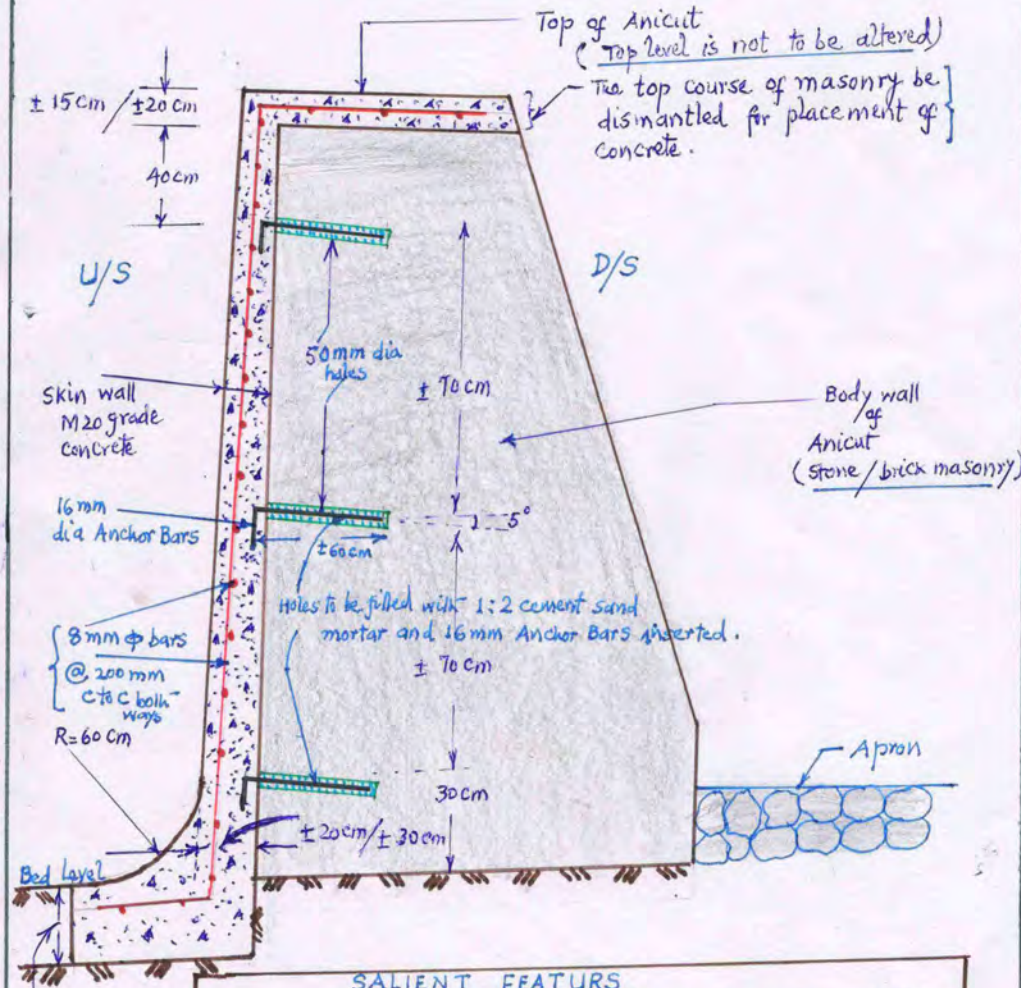 Top of Anicut
( Top level is not to be altered)
The top course of masonry be
dismantled for placement of
concrete.
± 15 cm / ± 20 cm
40 cm
U/S
D/S
50mm dia
holes
± 70 cm
Skin wall
M20 grade
concrete
Body wall
of
Anicut
(Stone / brick masonry)
16 mm
dia Anchor Bars
5°
± 60 cm
Holes to be filled with 1:2 cement sand
mortar and 16mm Anchor Bars inserted.
± 70 cm
8 mm φ bars
@ 200 mm
C to C both
ways
R=60 cm
Apron
30 cm
± 20 cm / ± 30 cm
Bed Level
SALIENT FEATURS